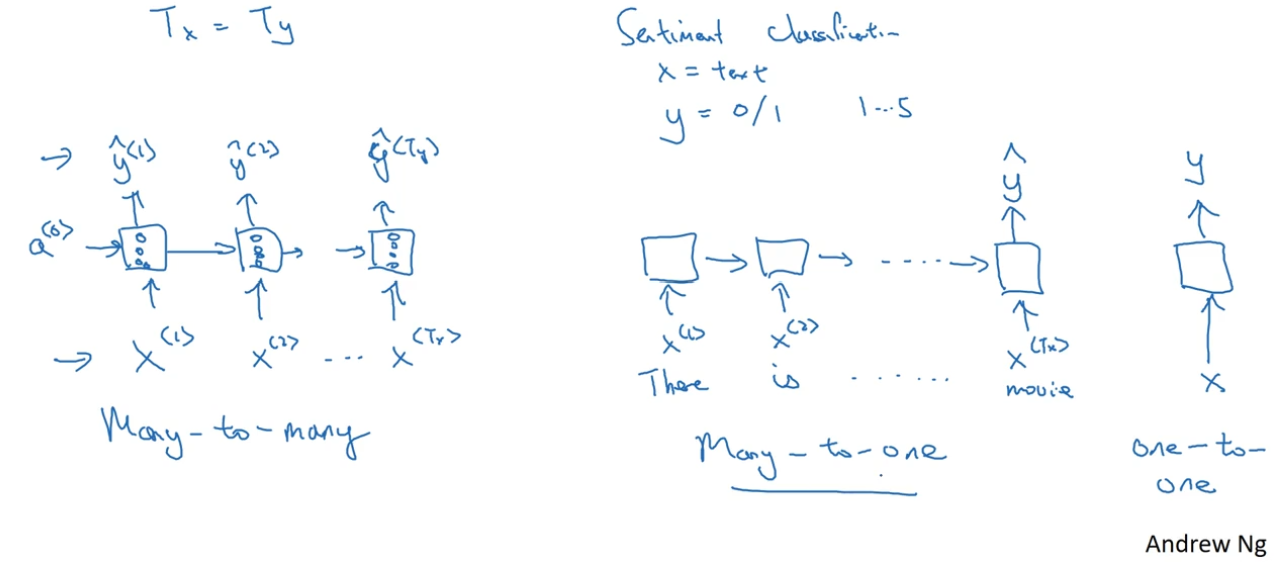 Tx = Ty
ŷ<1> ŷ<2> ŷ<Ty>
a<0>
x<1> x<2> ... x<Tx>
Many-to-many
Sentiment classification
x = text
y = 0/1 1...5
ŷ
x<1> x<2> x<Tx>
There is ....... movie
Many-to-one
y
x
one-to-
one
Andrew Ng